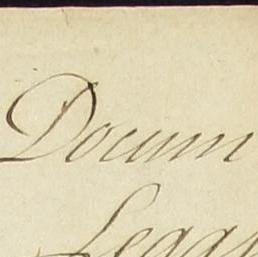 Docum
Legg